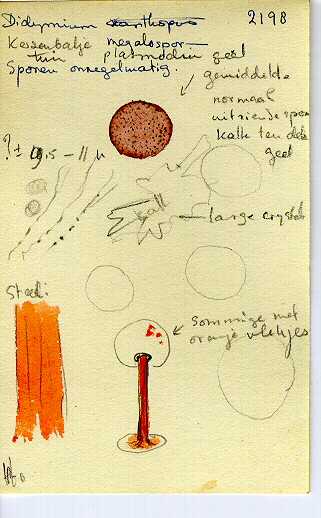 Didymium xanthopus 2198
Kessenbatje megalospor
tuin plasmodium geel
Sporen onregelmatig.
gemiddelde
normaal
uitziende spore
kalk ten dele
geel
? ± 9.5 – 11 µ
kalk
large crystals
Steel:
Sommige met
oranje vlekjes